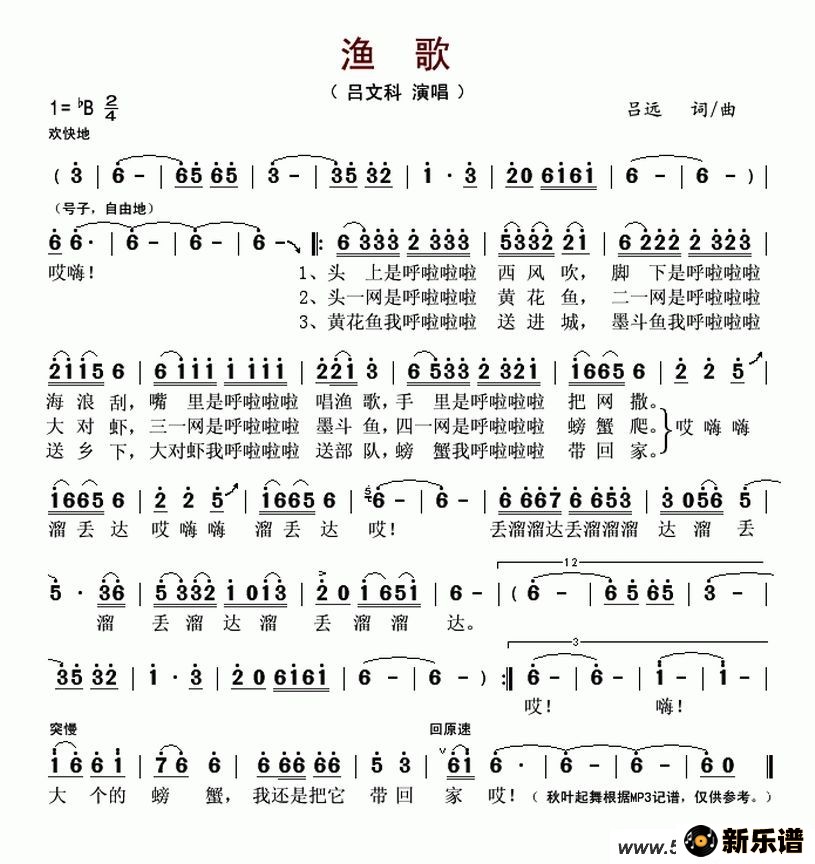 渔 歌
（ 吕文科 演唱 ）
1= ♭B 2/4
吕远 词/曲
欢快地
( 3 | 6 - | 65 65 | 3 - | 35 32 | 1 · 3 | 20 6161 | 6 - | 6 - ) |
（号子，自由地）
6 6· | 6 - | 6 - | 6 - |: 6 333 2 333 | 5332 21 | 6 222 2 323 |
哎嗨！ 1、头 上是呼啦啦啦 西 风 吹， 脚 下是呼啦啦啦
2、头一网是呼啦啦啦 黄 花 鱼， 二一网是呼啦啦啦
3、黄花鱼我呼啦啦啦 送 进 城， 墨斗鱼我呼啦啦啦
2115 6 | 6 111 1 111 | 221 3 | 6 533 2 321 | 1665 6 | 2 2 5 |
海 浪 刮， 嘴 里是呼啦啦啦 唱渔 歌， 手 里是呼啦啦啦 把 网 撒。
大 对 虾， 三一网是呼啦啦啦 墨斗 鱼， 四一网是呼啦啦啦 螃 蟹 爬。 哎 嗨 嗨
送 乡 下， 大对虾我呼啦啦啦 送部 队， 螃 蟹我呼啦啦啦 带 回 家。
1665 6 | 2 2 5 | 1665 6 | 6 - | 6 667 6 653 | 3 056 | 5
溜 丢 达 哎 嗨 嗨 溜 丢 达 哎！ 丢溜溜达丢溜溜溜 达 溜 丢
12
5 · 36 | 5 332 1 013 | 20 1 651 | 6 - | ( 6 - | 65 65 | 3 - |
溜 丢 溜 达 溜 丢 溜 溜 达。
3
35 32 | 1 · 3 | 20 6161 | 6 - | 6 - ) :| 6 - | 6 - | 1 - | 1 - |
哎！ 嗨！
突慢 回原速
1 6 61 | 76 6 | 66 66 66 | 5 3 | 61 6 - | 6 - | 6 - | 60 ||
大 个的 螃 蟹， 我还是把它 带 回 家 哎！（ 秋叶起舞根据MP3记谱，仅供参考。）
www.5
新乐谱